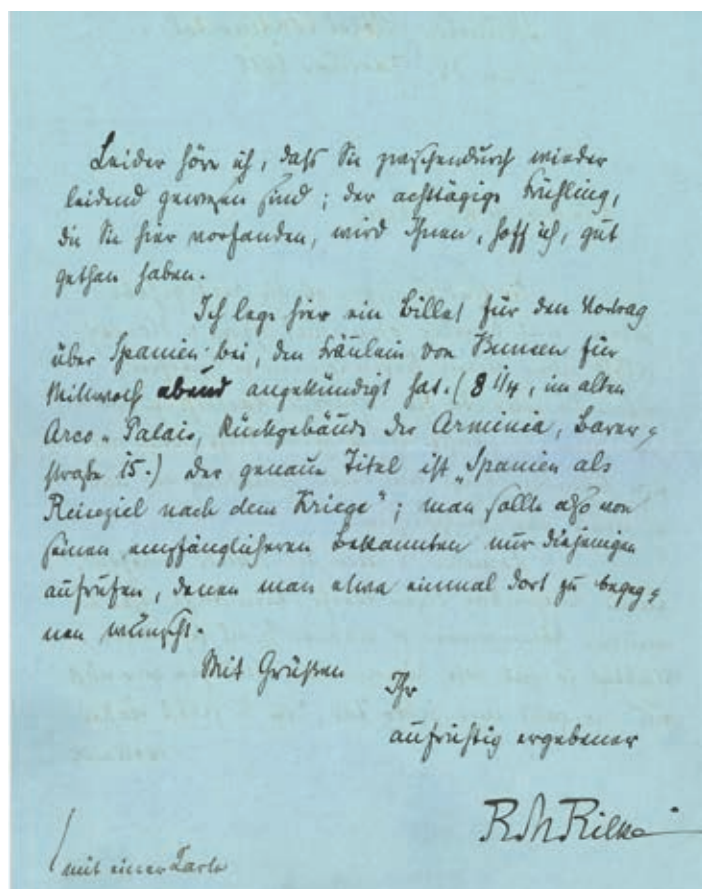 Leider höre ich, daß Sie zwischendurch wieder
leidend gewesen sind; der achttägige Frühling,
die Sie hier vorfanden, wird Ihnen, hoff ich, gut
gethan haben.
Ich lege hier ein Billet für den Vortrag
über Spanien bei, den Fräulein von Bunsen für
Mittwoch abend angekündigt hat. (8 1/4, im alten
Arco-Palais, Rückgebäude der Arminia, Barer-
straße 15.) Der genaue Titel ist „Spanien als
Reiseziel nach dem Kriege"; man sollte also von
seinen empfänglicheren Bekannten nur diejenigen
aufrufen, denen man etwa einmal dort zu begeg-
nen wünscht.
Mit Grüßen
Ihr
aufrichtig ergebener
RMRilke
(mit einer Karte